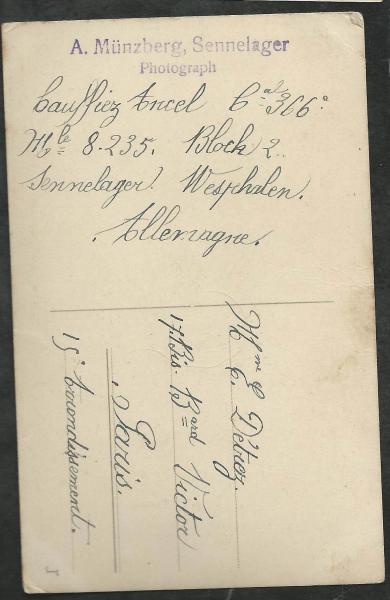 A. Münzberg, Sennelager
Photograph
Cauffiez Ancel C^al 366^e
M^le 8.235. Block 2.
Sennelager. Westphalen.
Allemagne.
M^r E. Détrez.
17 Bis. B^ard Victor
Paris.
15^e Arrondissement.